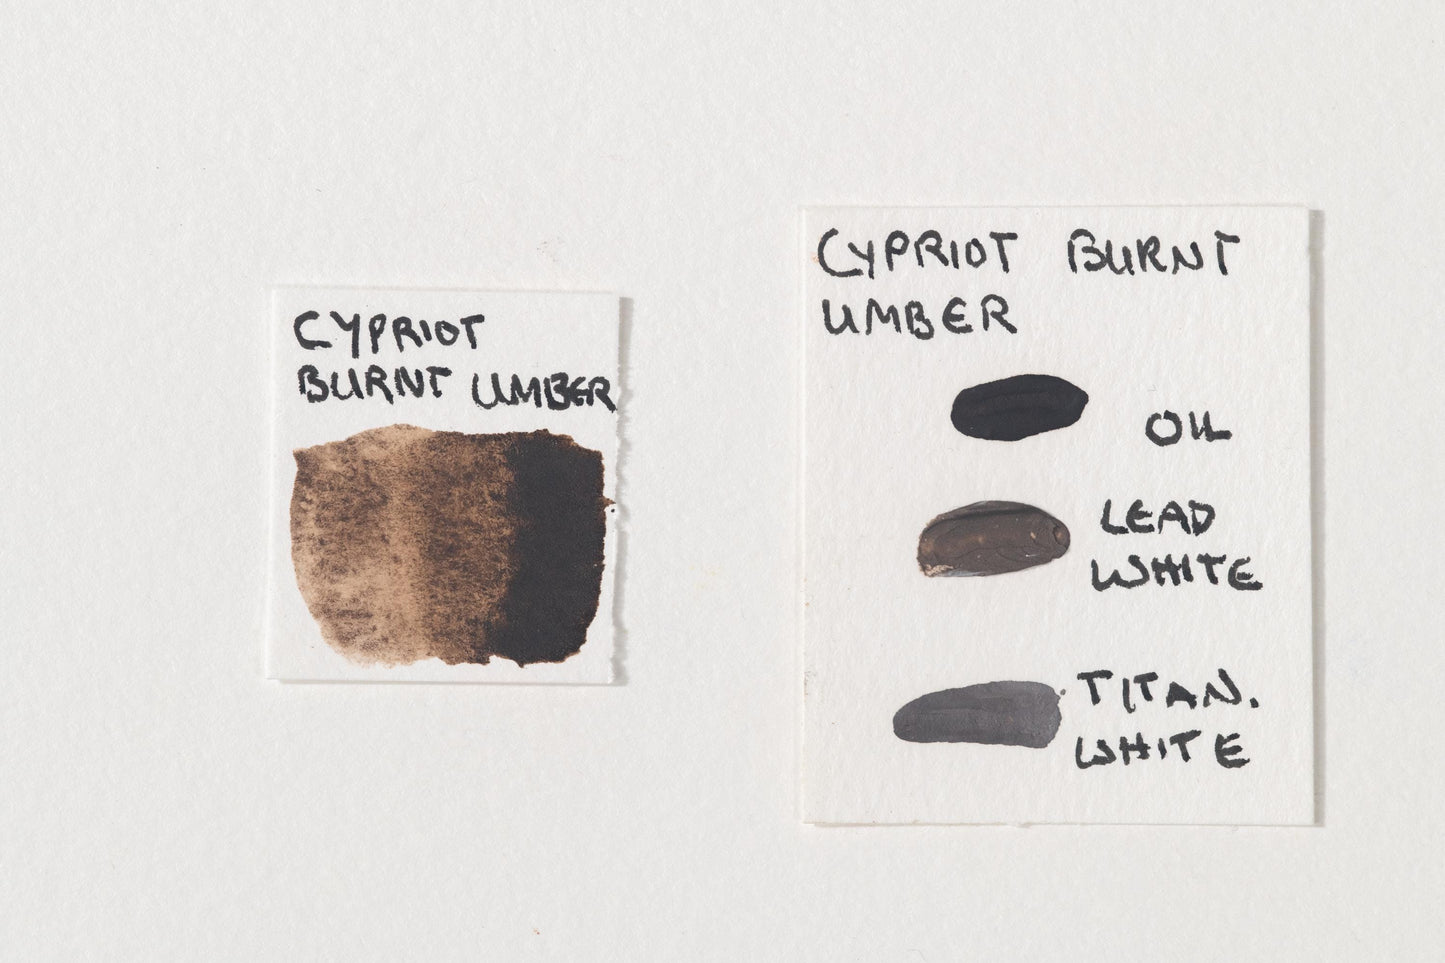 CYPRIOT
BURNT UMBER
CYPRIOT BURNT
UMBER
OIL
LEAD
WHITE
TITAN.
WHITE